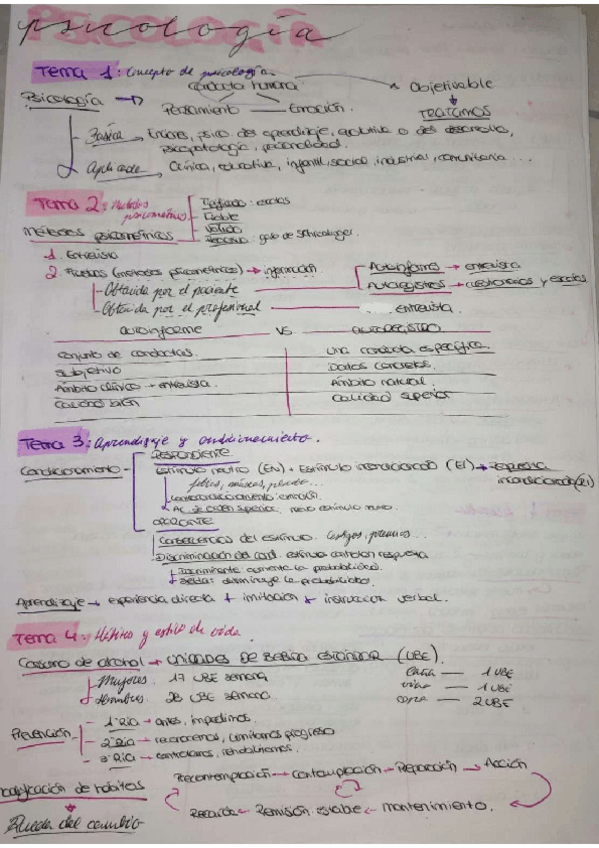 psicología
Tema 1: Concepto de psicología.
conducta humana
Psicología → Pensamiento Emoción. Objetivable
TRATAMOS
Básica → psico. des aprendizaje, evolutiva o des desarrollo,
psicopatología, personalidad.
Aplicada → Clínica, educativa, infantil, social, industrial, comunitaria...
Tema 2: Métodos psicométricos
Métodos psicométricos
Fiable
Válido
1. Entrevista
2. Pruebas (métodos psicométricos) → información
Autoinformes → entrevista
Autoregistros → cuestionarios y escalas
- Obtenida por el paciente
- Obtenida por el profesional entrevista.
autoinforme VS autoregistro
conjunto de conductas. una conducta específica.
subjetivo Datos concretos.
Ámbito clínico → entrevista. Ámbito natural.
calidad bien calidad superior
Tema 3: Aprendizaje y condicionamiento.
Condicionamiento
Respondiente
Estímulo neutro (EN) + Estímulo incondicionado (EI) → Respuesta incondicionada (RI)
fobias, músicas,
AC de orden superior. nuevo estímulo neutro.
OPERANTE
Consecuencias del estímulo. Castigos, premios...
Discriminación del cond. estímulo controlan respuesta
aumenta la probabilidad.
Delta: disminuye la probabilidad.
Aprendizaje → experiencia directa + imitación + instrucción verbal.
Tema 4: Hábitos y estilo de vida.
Consumo de alcohol → UNIDADES DE BEBIDA ESTÁNDAR (UBE).
Mujeres. 17 UBE semana
Hombres. 28 UBE semana.
Caña — 1 UBE
vino — 1 UBE
copa — 2 UBE
Prevención
- 1ª RIA → antes, impedimos.
- 2ª RIA → reconocemos, limitamos progreso
- 3ª RIA → controlamos, rehabilitamos.
Modificación de hábitos
Rueda del cambio
Precontemplación → Contemplación → Preparación → Acción
Recaída ← Remisión estable ← mantenimiento.